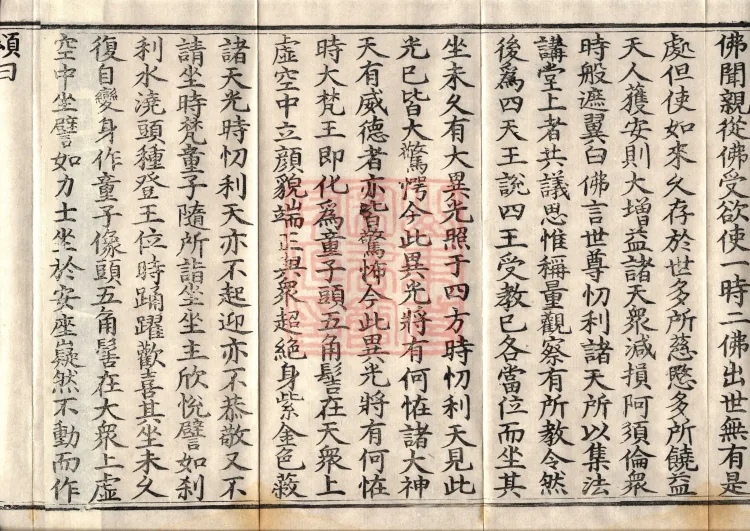 佛聞親從佛受欲使一時二佛出世無有是
處但使如來久存於世多所慈愍多所饒益
天人獲安則大增益諸天衆減損阿須倫衆
時般遮翼白佛言世尊忉利諸天所以集法
講堂上者共議思惟稱量觀察有所教令然
後爲四天王說四王受教已各當位而坐其
坐未久有大異光照于四方時忉利天見此
光已皆大驚愕今此異光將有何恠諸大神
天有威德者亦皆驚怖今此異光將有何恠
時大梵王即化爲童子頭五角髻在天衆上
虛空中立顔貌端正與衆超絕身紫金色蔽
諸天光時忉利天亦不起迎亦不恭敬又不
請坐時梵童子隨所詣坐坐主欣悅譬如刹
利水澆頭種登王位時踊躍歡喜其坐未久
復自變身作童子像頭五角髻在大衆上虛
空中坐譬如力士坐於安座嶷然不動而作
頌曰